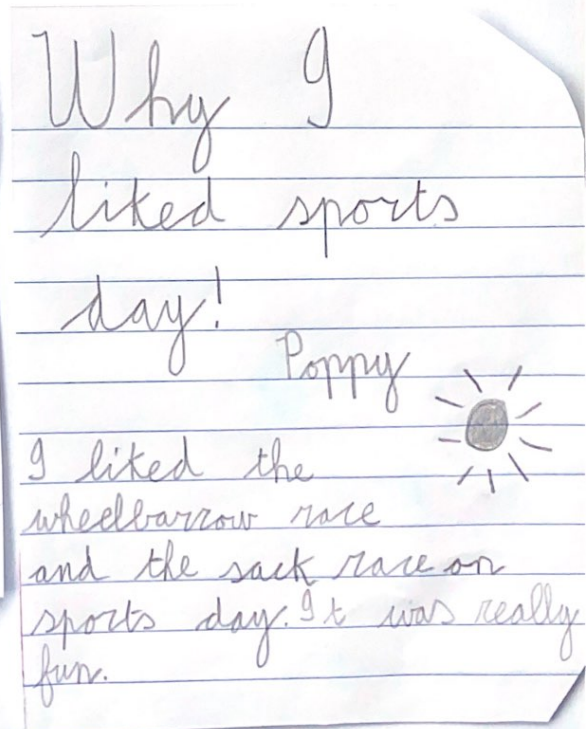 Why I
liked sports
day!
Poppy
I liked the
wheelbarrow race
and the sack race on
sports day. It was really
fun.